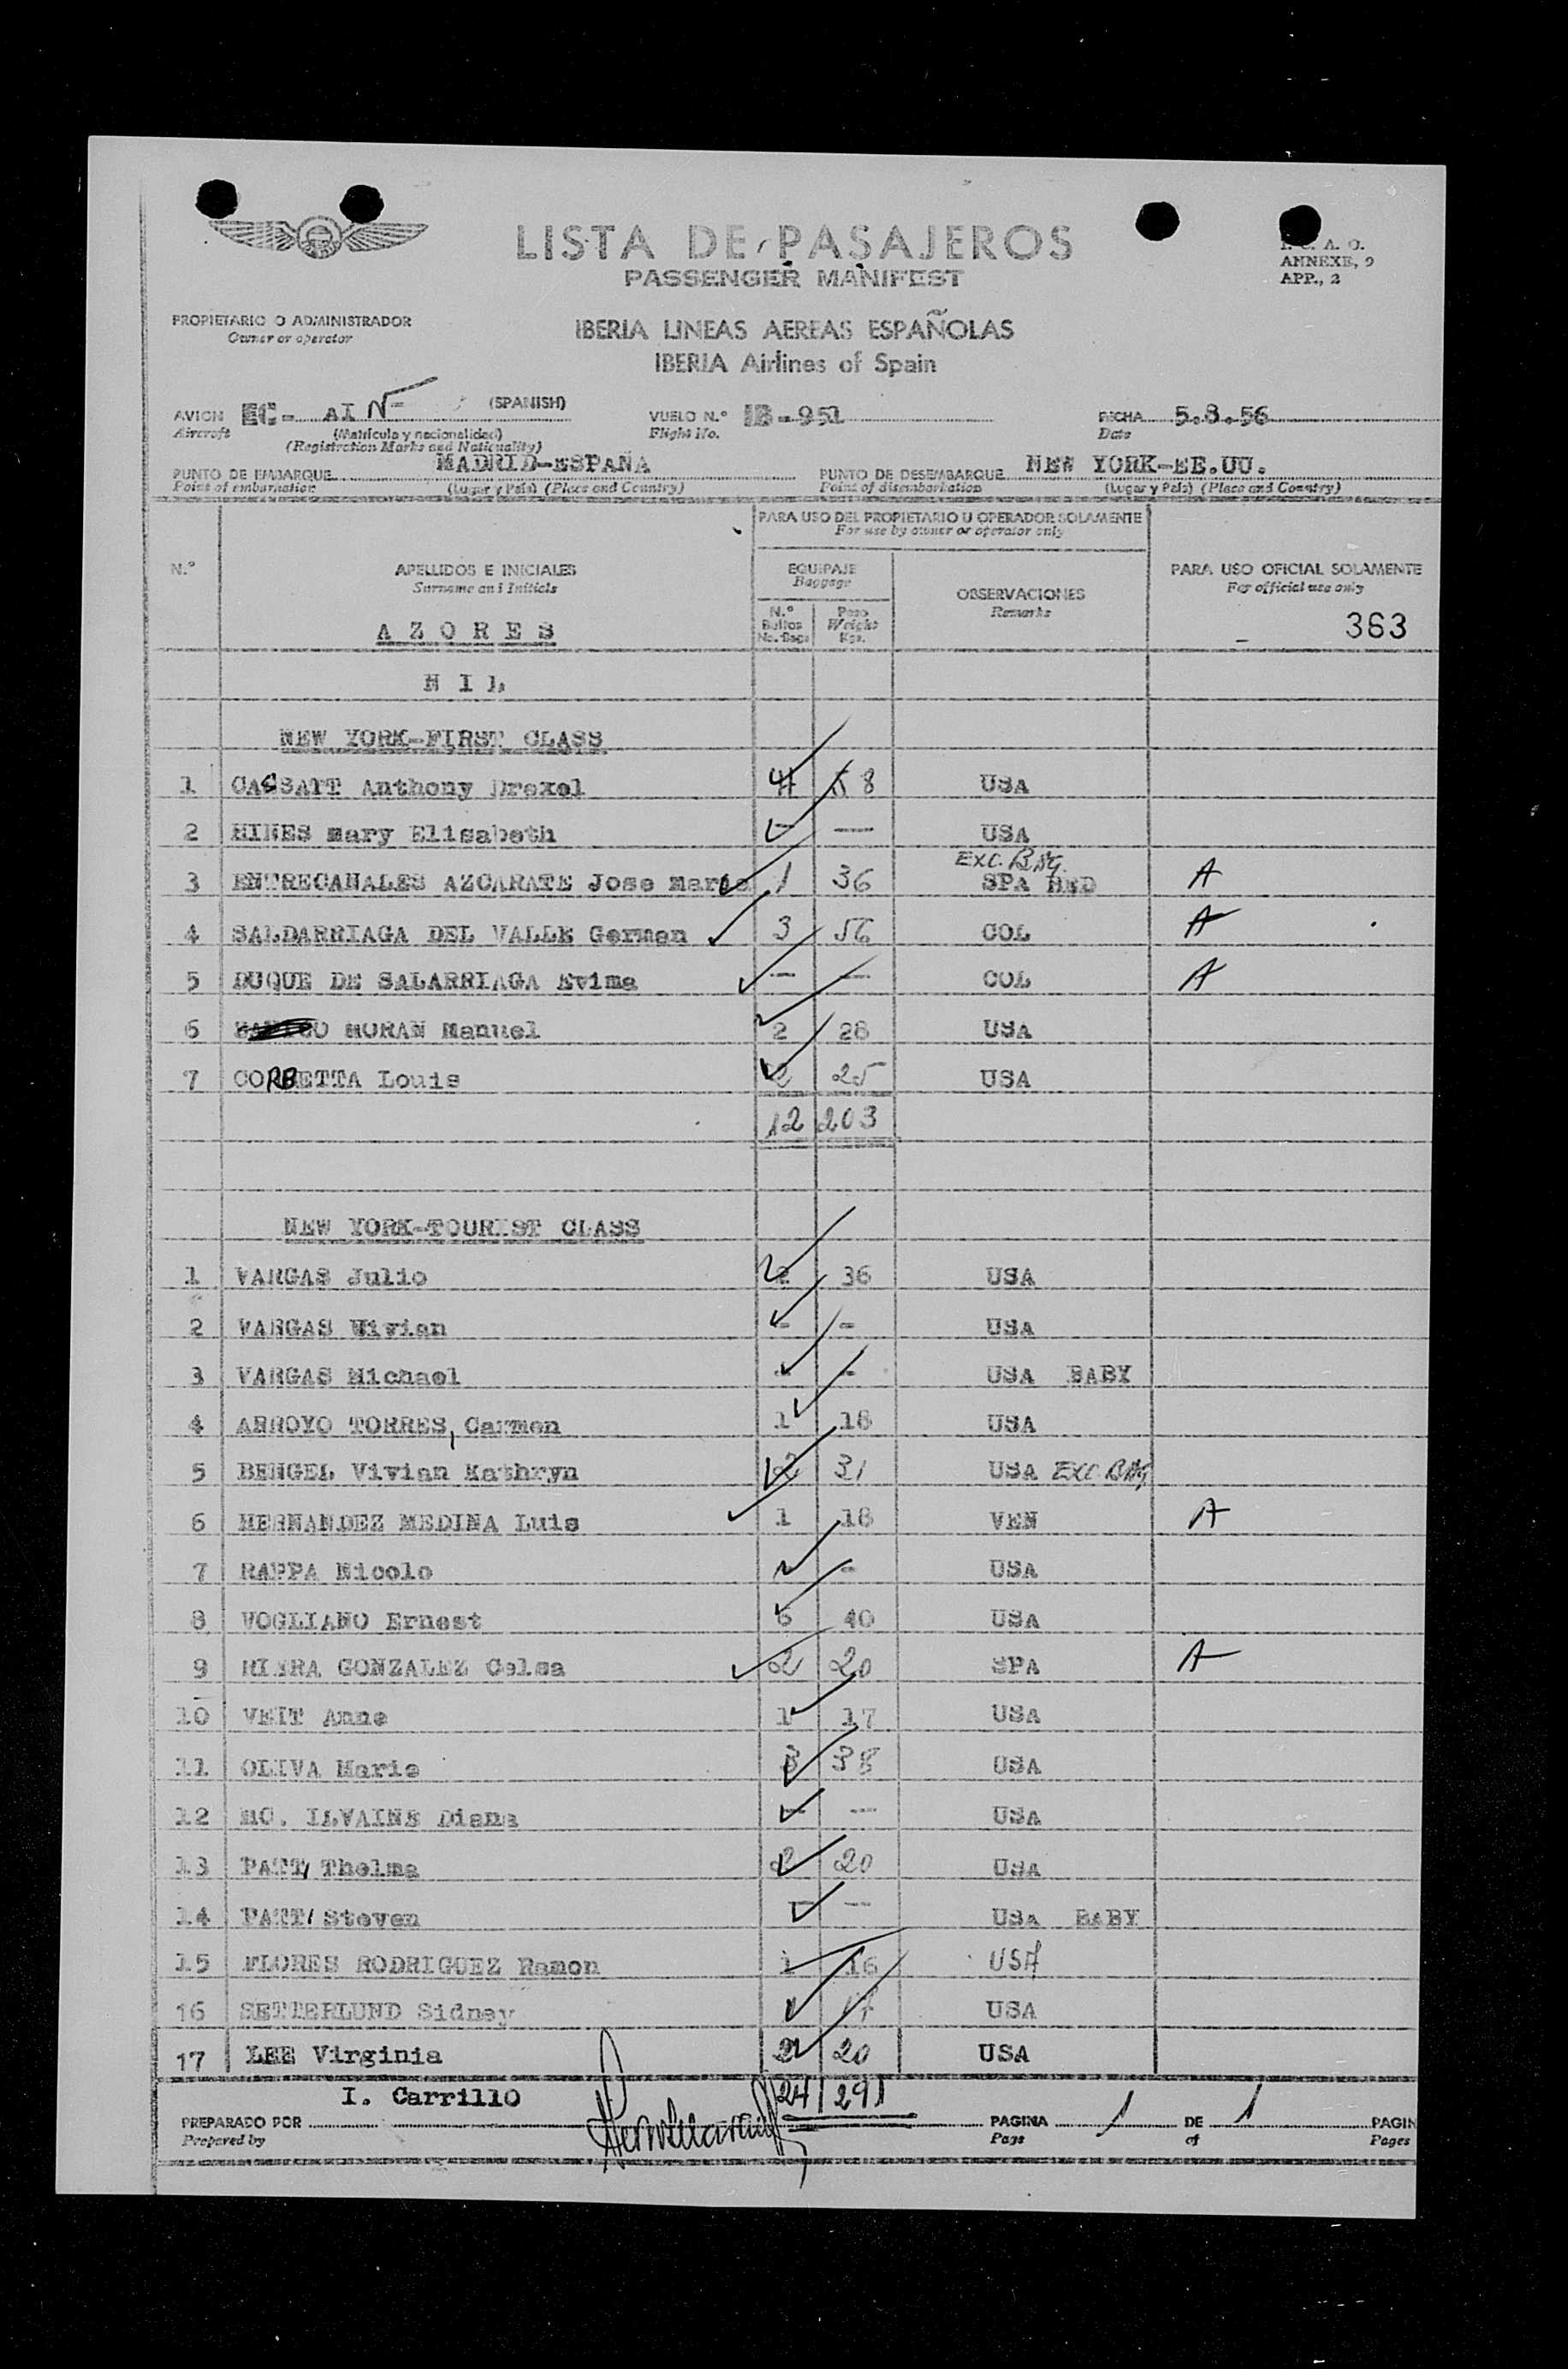 LISTA DE PASAJEROS
PASSENGER MANIFEST
A. O.
ANNEXE, 9
APP., 2
PROPIETARIO O ADMINISTRADOR
Owner or operator
IBERIA LINEAS AEREAS ESPAÑOLAS
IBERIA Airlines of Spain
AVION EC- AI N- (SPANISH) VUELO N.º IB-951 FECHA 5.8.56
Aircraft (Matrícula y nacionalidad) Flight No. Date
(Registration Marks and Nationality)
PUNTO DE EMBARQUE MADRID-ESPAÑA PUNTO DE DESEMBARQUE NEW YORK-EE.UU.
Point of embarnation (Lugar y País) (Place and Country) Point of disembarkation (Lugar y País) (Place and Country)
PARA USO DEL PROPIETARIO U OPERADOR SOLAMENTE
For use by owner or operator only
N.º APELLIDOS E INICIALES EQUIPAJE OBSERVACIONES PARA USO OFICIAL SOLAMENTE
Surname and Initials Baggage Remarks For official use only
N.º Bultos No. Bags Peso Weight Kgs.
A Z O R E S 363
N I L
NEW YORK-FIRST CLASS
1 CASSATT Anthony Drexel 4 58 USA
2 HINES mary Elisabeth - — USA
3 ENTRECANALES AZCARATE Jose maria 1 36 EXC. BAG. SPA RED A
4 SALDARRIAGA DEL VALLE German 3 56 COL A
5 DUQUE DE SALARRIAGA Evima — — COL A
6 MORAN Manuel 2 28 USA
7 CORBETTA Louis 2 25 USA
12 203
NEW YORK-TOURIST CLASS
1 VARGAS Julio 2 36 USA
2 VARGAS Vivian - - USA
3 VARGAS Michael - - USA BABY
4 ARROYO TORRES, Carmen 1 18 USA
5 BENGEL Vivian Kathryn 2 31 USA EXC. BAG
6 HERNANDEZ MEDINA Luis 1 18 VEN A
7 RAPPA Nicolo - USA
8 VOGLIANO Ernest 6 40 USA
9 RIERA GONZALEZ Celsa 2 20 SPA A
10 VEIT Anne 1 17 USA
11 OLIVA Marie 3 38 USA
12 MC. ILVAINE Diana — — USA
13 PATT, Thelma 2 20 USA
14 PATT, Steven — — USA BABY
15 FLORES RODRIGUEZ Ramon 1 16 USA
16 SETTERLUND Sidney 1 17 USA
17 LEE Virginia 2 20 USA
I. Carrillo 24 291
PREPARADO POR PAGINA 1 DE 1 PAGIN
Prepared by Page of Pages